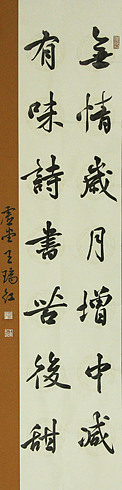 無情歲月增中減
有味詩書苦後甜
虛堂王瑞紅